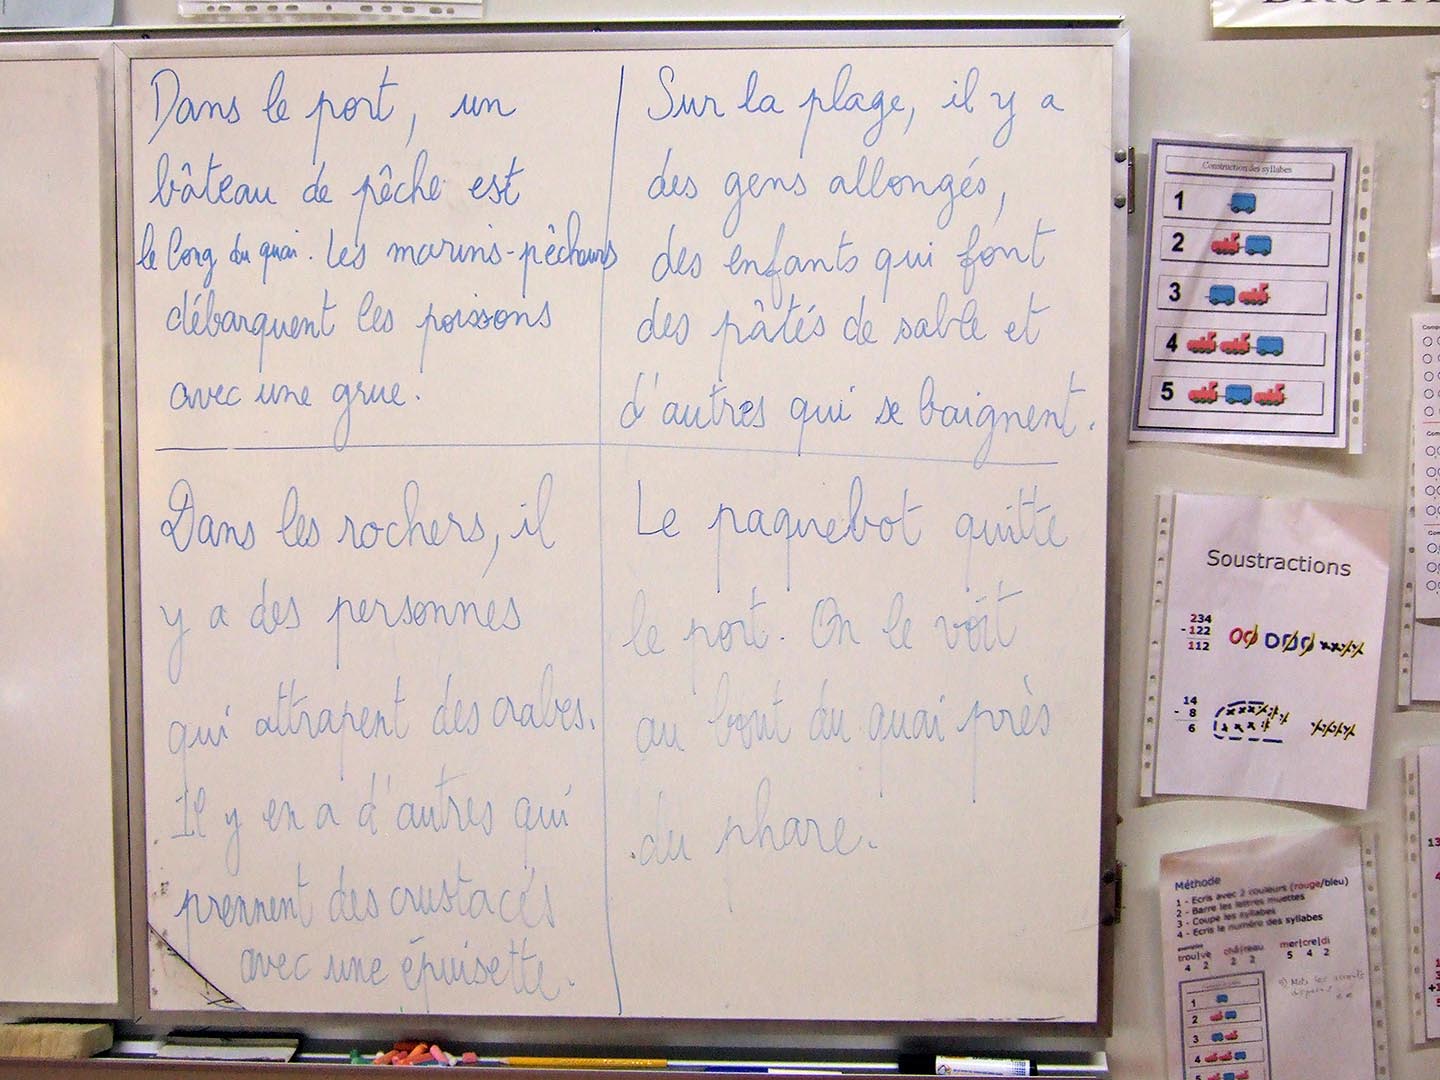 Dans le port, un
bâteau de pêche est
le long du quai. Les marins-pêcheurs
débarquent les poissons
avec une grue.
Sur la plage, il y a
des gens allongés,
des enfants qui font
des pâtés de sable et
d'autres qui se baignent.
Dans les rochers, il
y a des personnes
qui attrapent des crabes.
Il y en a d'autres qui
prennent des crustacés
avec une épuisette.
Le paquebot quitte
le port. On le voit
au bout du quai près
du phare.
Construction des syllabes
1
2
3
4
5
Soustractions
234
- 122
112
14
- 8
6
Méthode
1 - Ecris avec 2 couleurs (rouge/bleu)
2 - Barre les lettres muettes
3 - Coupe les syllabes
4 - Ecris le numéro des syllabes
exemples
trou|ve châ|teau mer|cre|di
4 2 2 2 5 4 2
1
2
3
4
5